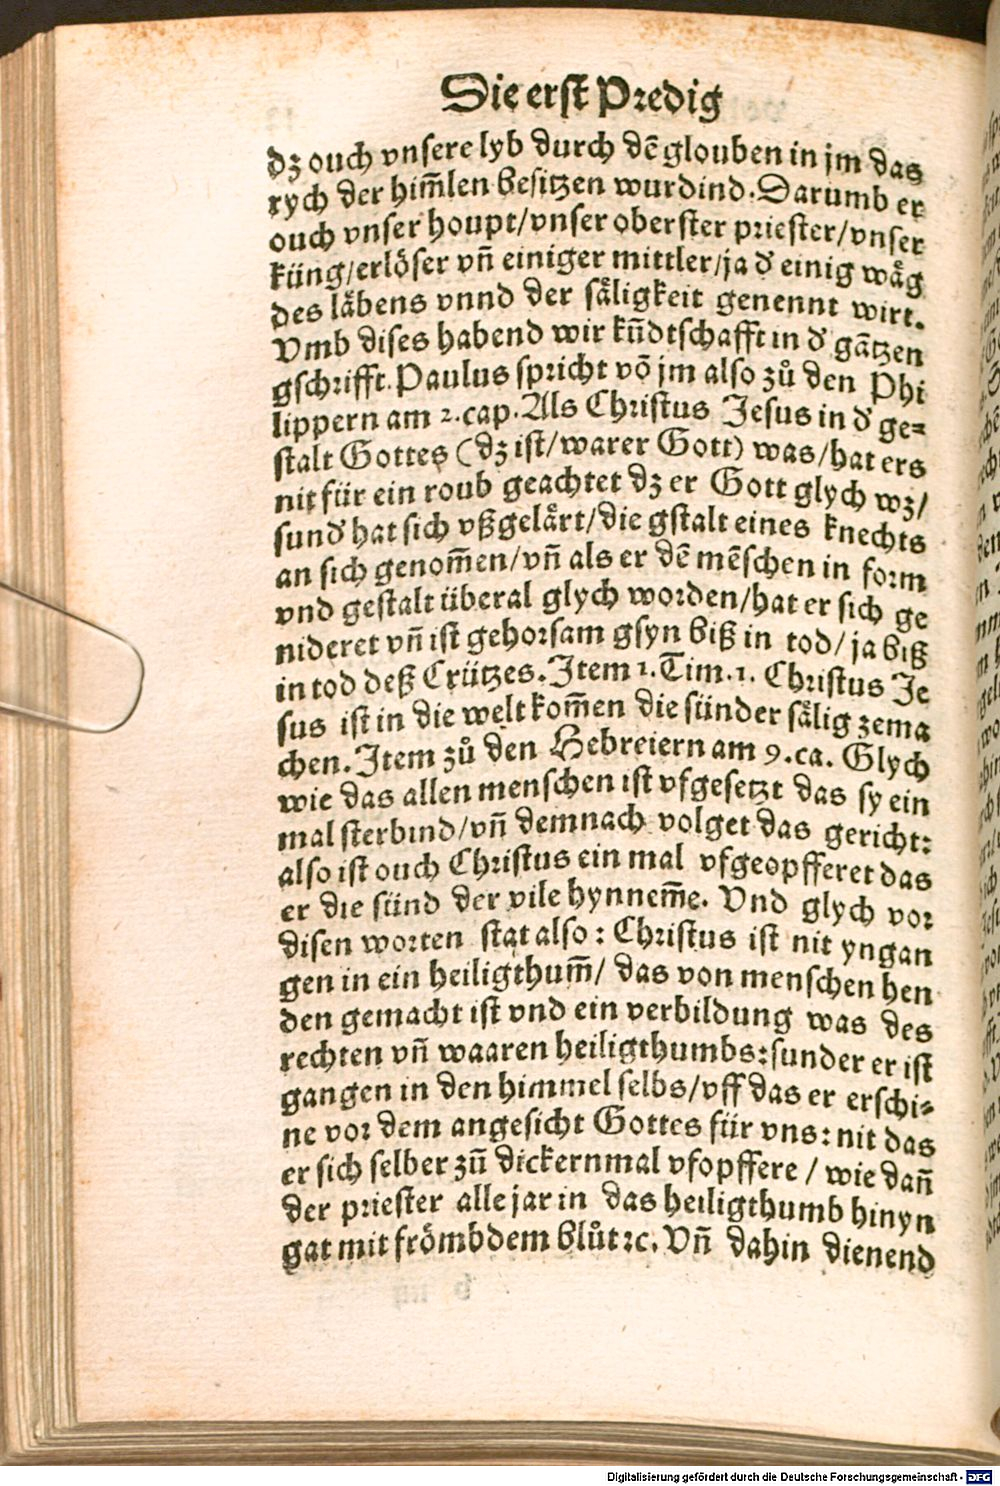 Die erst Predig
dz ouch vnsere lyb durch dē glouben in jm das
rych der him̄len besitzen wurdind. Darumb er
ouch vnser houpt/vnser oberster priester/vnser
küng/erlöser vn̄ einiger mittler/ja d' einig wåg
des låbens vnnd der såligkeit genennt wirt.
Vmb dises habend wir kūdtschafft in d' gātzen
gschrifft. Paulus spricht vō jm also zů den Phi
lippern am 2.cap. Als Christus Jesus in d' ge=
stalt Gottes (dz ist/warer Gott) was/hat ers
nit für ein roub geachtet dz er Gott glych wz/
sund' hat sich vßgelårt/die gstalt eines knechts
an sich genom̄en/vn̄ als er dē mēschen in form
vnd gestalt überal glych worden/hat er sich ge
nideret vn̄ ist gehorsam gsyn biß in tod/ja biß
in tod deß Crützes. Item 1. Tim. 1. Christus Je
sus ist in die welt kom̄en die sünder sålig zema
chen. Item zů den Hebreiern am 9. ca. Glych
wie das allen menschen ist vfgesetzt das sy ein
mal sterbind/vn̄ demnach volget das gericht:
also ist ouch Christus ein mal vfgeopfferet das
er die sünd der vile hynnem̄e. Vnd glych vor
disen worten stat also: Christus ist nit yngan
gen in ein heiligthum̄/ das von menschen hen
den gemacht ist vnd ein verbildung was des
rechten vn̄ waaren heiligthumbs: sunder er ist
gangen in den himmel selbs/vff das er erschi=
ne vor dem angesicht Gottes für vns: nit das
er sich selber zū dickernmal vfopffere / wie dan̄
der priester alle jar in das heiligthumb hinyn
gat mit frömbdem blůt ꝛc. Vn̄ dahin dienend
Digitalisierung gefördert durch die Deutsche Forschungsgemeinschaft - DFG